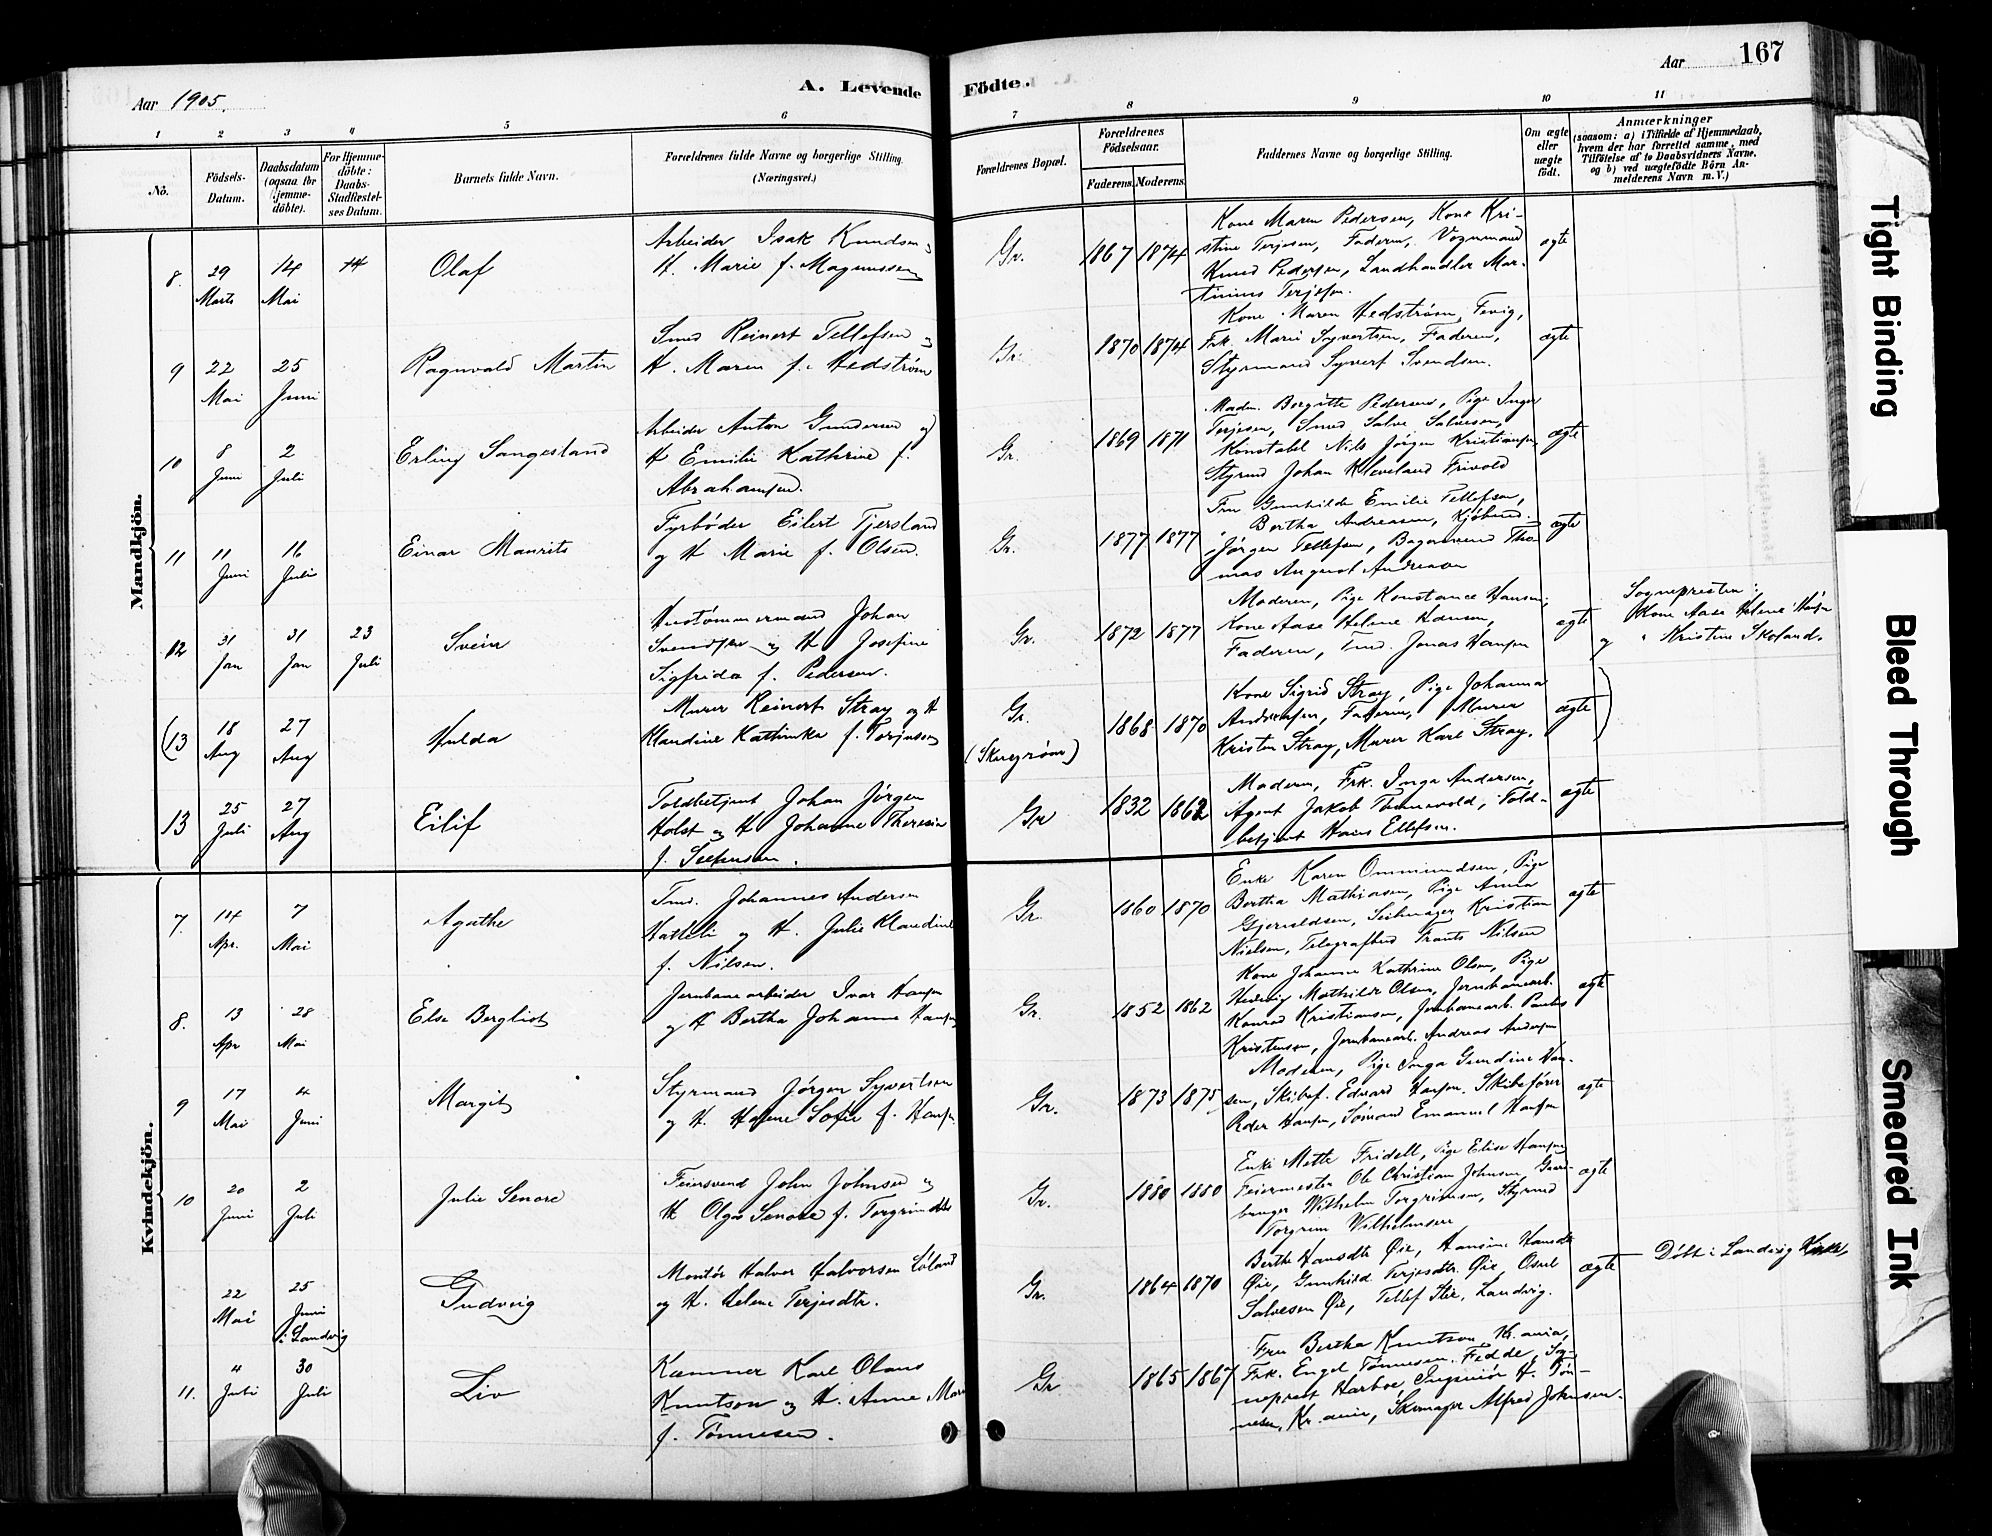 167
Aar 1905.
A. Levende Födte.
Aar
1 2 3 4 5 6 7 8 9 10 11
No.
Födsels-
Datum.
Daabsdatum
(ogsaa for
hjemme-
döbte).
For Hjemme-
döbte:
Daabs-
Stadfæstel-
ses Datum.
Barnets fulde Navn.
Forældrenes fulde Navne og borgerlige Stilling.
(Næringsvei.)
Forældrenes Bopæl.
Forældrenes
Födselsaar.
Faderens. Moderens.
Faddernes Navne og borgerlige Stilling.
Om ægte
eller
uægte
födt.
Anmærkninger
(saasom: a) i Tilfælde af Hjemmedaab,
hvem der har forrettet samme, med
Tilföielse af to Daabsvidners Navne,
og b) ved uægtefödte Börn An-
melderens Navn m. V.)
Mandkjön.
8. 29 Marts 14 Mai 14 Olaf
Arbeider Isak Knudsen
H. Marie f. Magnussen
Gr. 1867 1874
Kone Maren Pedersen, Kone Kri-
stine Terjesen, Faderen, Vognmand
Knud Pedersen, Landhandler Mar-
tinius Terjesen.
ægte
9 22 Mai 25 Juni Ragnvald Martin
Smed Reinert Tellefsen og
H. Maren f. Hedstrøm
Gr. 1870 1874
Kone Maren Hedstrøm, Fevig,
Frk. Marie Syvertsen, Faderen,
Styrmand Syvert Svendsen.
ægte
10 8 Juni 2 Juli Erling Sangesland
Arbeider Anton Gundersen og
H Emilie Kathrine f.
Abrahamsen.
Gr. 1869 1871
Madm. Borgitte Pedersen, Pige Inger
Terjesen, Smed Salve Salvesen,
Konstabel Nils Jørgen Kristiansen
Styrmd Johan Kleveland Frivold
ægte
11 11 Juni 16 Juli Einar Mauritz
Fyrbøder Eilert Tjersland
og H Marie f. Olsen.
Gr. 1877 1877
Fru Gunhilde Emilie Tellefsen,
" Bertha Andreasen, Kjøbmd.
Jørgen Tellefsen, Bagersvend Tho-
mas August Andreasen
ægte
12 31 Jan 31 Jan 23 Juli Svein
Hustømmermand Johan
Svendsen og H Josefine
Sigfrida f. Pedersen.
Gr. 1872 1877
Moderen, Pige Konstance Hansen,
Kone Aase Helene Hansen,
Faderen, Tmd. Jonas Hansen
ægte
Sognepresten:
Kone Aase Helene Hansen
og " Kristine Skoland.
(13 18 Aug 27 Aug Hulda
Murer Reinert Stray og H
Klaudine Kathinka f. Terjesen
Gr.
1868 1870
Kone Sigrid Stray, Pige Johanna
Andersen, Faderen, Murer
Kristen Stray, Murer Karl Stray.
ægte )
13 25 Juli 27 Aug Eilif
Toldbetjent Johan Jørgen
Holst og H Johanne Theresia
f.
Gr 1832 1862
Moderen, Frk. Inga Andersen,
Agent Jakob Thinnvold, Told-
betjent Hans Ellefsen.
ægte
Kvindekjön.
7. 14 Apr. 7 Mai Agathe
Tmd. Johannes Andersen
Hatteli og H. Julie Klaudine
f. Nilsen.
Gr. 1860 1870
Enke Karen Ommundsen, Pige
Bertha Mathiasen, Pige Anna
Gjeruldsen, Seilmager Kristian
Nielsen, Telegrafbud Frants Nilsen
ægte
8. 13 Apr 28 Mai Else Bergliot
Jernbanearbeider Ivar Hansen
og H Bertha Johanne Hansen
Gr. 1852 1862
Kone Johanne Kathrine Olsen, Pige
Hedvig Mathilde Olsen, Jernbanearb.
Konrad Kristiansen, Jernbanearb. Paulus
Kristensen, Jernbanearb. Andreas Andersen
ægte
9 17 Mai 4 Juni Margit
Styrmand Jørgen Syvertsen
og H. Helene Sofie f. Hansen
Gr. 1873 1875
Moderen, Pige Inga Gundine Han-
sen, Skibsf. Edvard Hansen, Skibsfører
Peder Hansen, Sømand Emanuel Hansen
ægte
10 20 Juni 2 Juli Julie Senore
Feiersvend John Johnsen og
H Olga Senore f. Torgrimsdtr
Gr. 1880 1880
Enke Mette Fridell, Pige Elise Hansen
Feiermester Ole Christian Johnsen, Gaard-
bruger Wilhelm Torgrimsen, Styrmd
Torgrim Wilhelmsen
ægte
22 Mai 25 Juni i Landvig Gudveig
Montør Halvor Halvorsen Løland
og H. Helene Terjesdtr.
Gr. 1864 1870
Berthe Hansdtr Øie, Hansine Hansdtr
Øie, Gunhild Terjesdtr. Øie, Osuld
Salvesen Øie, Tellef Øie, Landvig.
ægte
Døbt i Landvig Kirke
11. 4 Juli 30 Juli Liv
Kæmner Karl Olaus
Knutson og H. Anne Marie
f. Tønnesen.
Gr 1865 1867
Fru Bertha Knutson, Kr.ania,
Frk. Engel Tønnesen, Fedde, Sog-
neprest Harboe, Ingeniør H. Tøn-
nesen, Kr.ania, Skomager Alfred Johnsen.
Tight Binding
Bleed Through
Smeared Ink